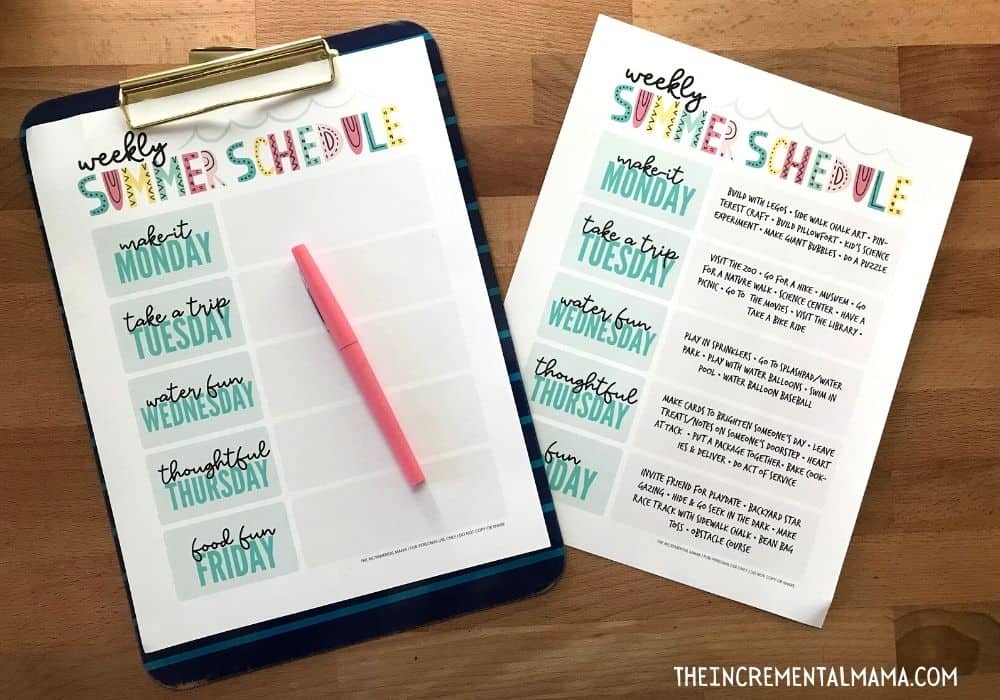 weekly
SUMMER SCHEDULE
make-it
MONDAY
take a trip
TUESDAY
water fun
WEDNESDAY
thoughtful
THURSDAY
food fun
FRIDAY
THE INCREMENTAL MAMA | FOR PERSONAL USE ONLY | DO NOT COPY OR SHARE
weekly
SUMMER SCHEDULE
make-it
MONDAY
BUILD WITH LEGOS • SIDE WALK CHALK ART • PIN-
TEREST CRAFT • BUILD PILLOWFORT • KID'S SCIENCE
EXPERIMENT • MAKE GIANT BUBBLES • DO A PUZZLE
take a trip
TUESDAY
VISIT THE ZOO • GO FOR A HIKE • MUSUEM • GO
FOR A NATURE WALK • SCIENCE CENTER • HAVE A
PICNIC • GO TO THE MOVIES • VISIT THE LIBRARY •
TAKE A BIKE RIDE
water fun
WEDNESDAY
PLAY IN SPRINKLERS • GO TO SPLASHPAD/WATER
PARK • PLAY WITH WATER BALLOONS • SWIM IN
POOL • WATER BALLOON BASEBALL
thoughtful
THURSDAY
MAKE CARDS TO BRIGHTEN SOMEONE'S DAY • LEAVE
TREATS/NOTES ON SOMEONE'S DOORSTEP • HEART
ATTACK • PUT A PACKAGE TOGETHER • BAKE COOK-
IES & DELIVER • DO ACT OF SERVICE
fun
DAY
INVITE FRIEND FOR PLAYDATE • BACKYARD STAR
GAZING • HIDE & GO SEEK IN THE DARK • MAKE
RACE TRACK WITH SIDEWALK CHALK • BEAN BAG
TOSS • OBSTACLE COURSE
THE INCREMENTAL MAMA | FOR PERSONAL USE ONLY | DO NOT COPY OR SHARE
THEINCREMENTALMAMA.COM